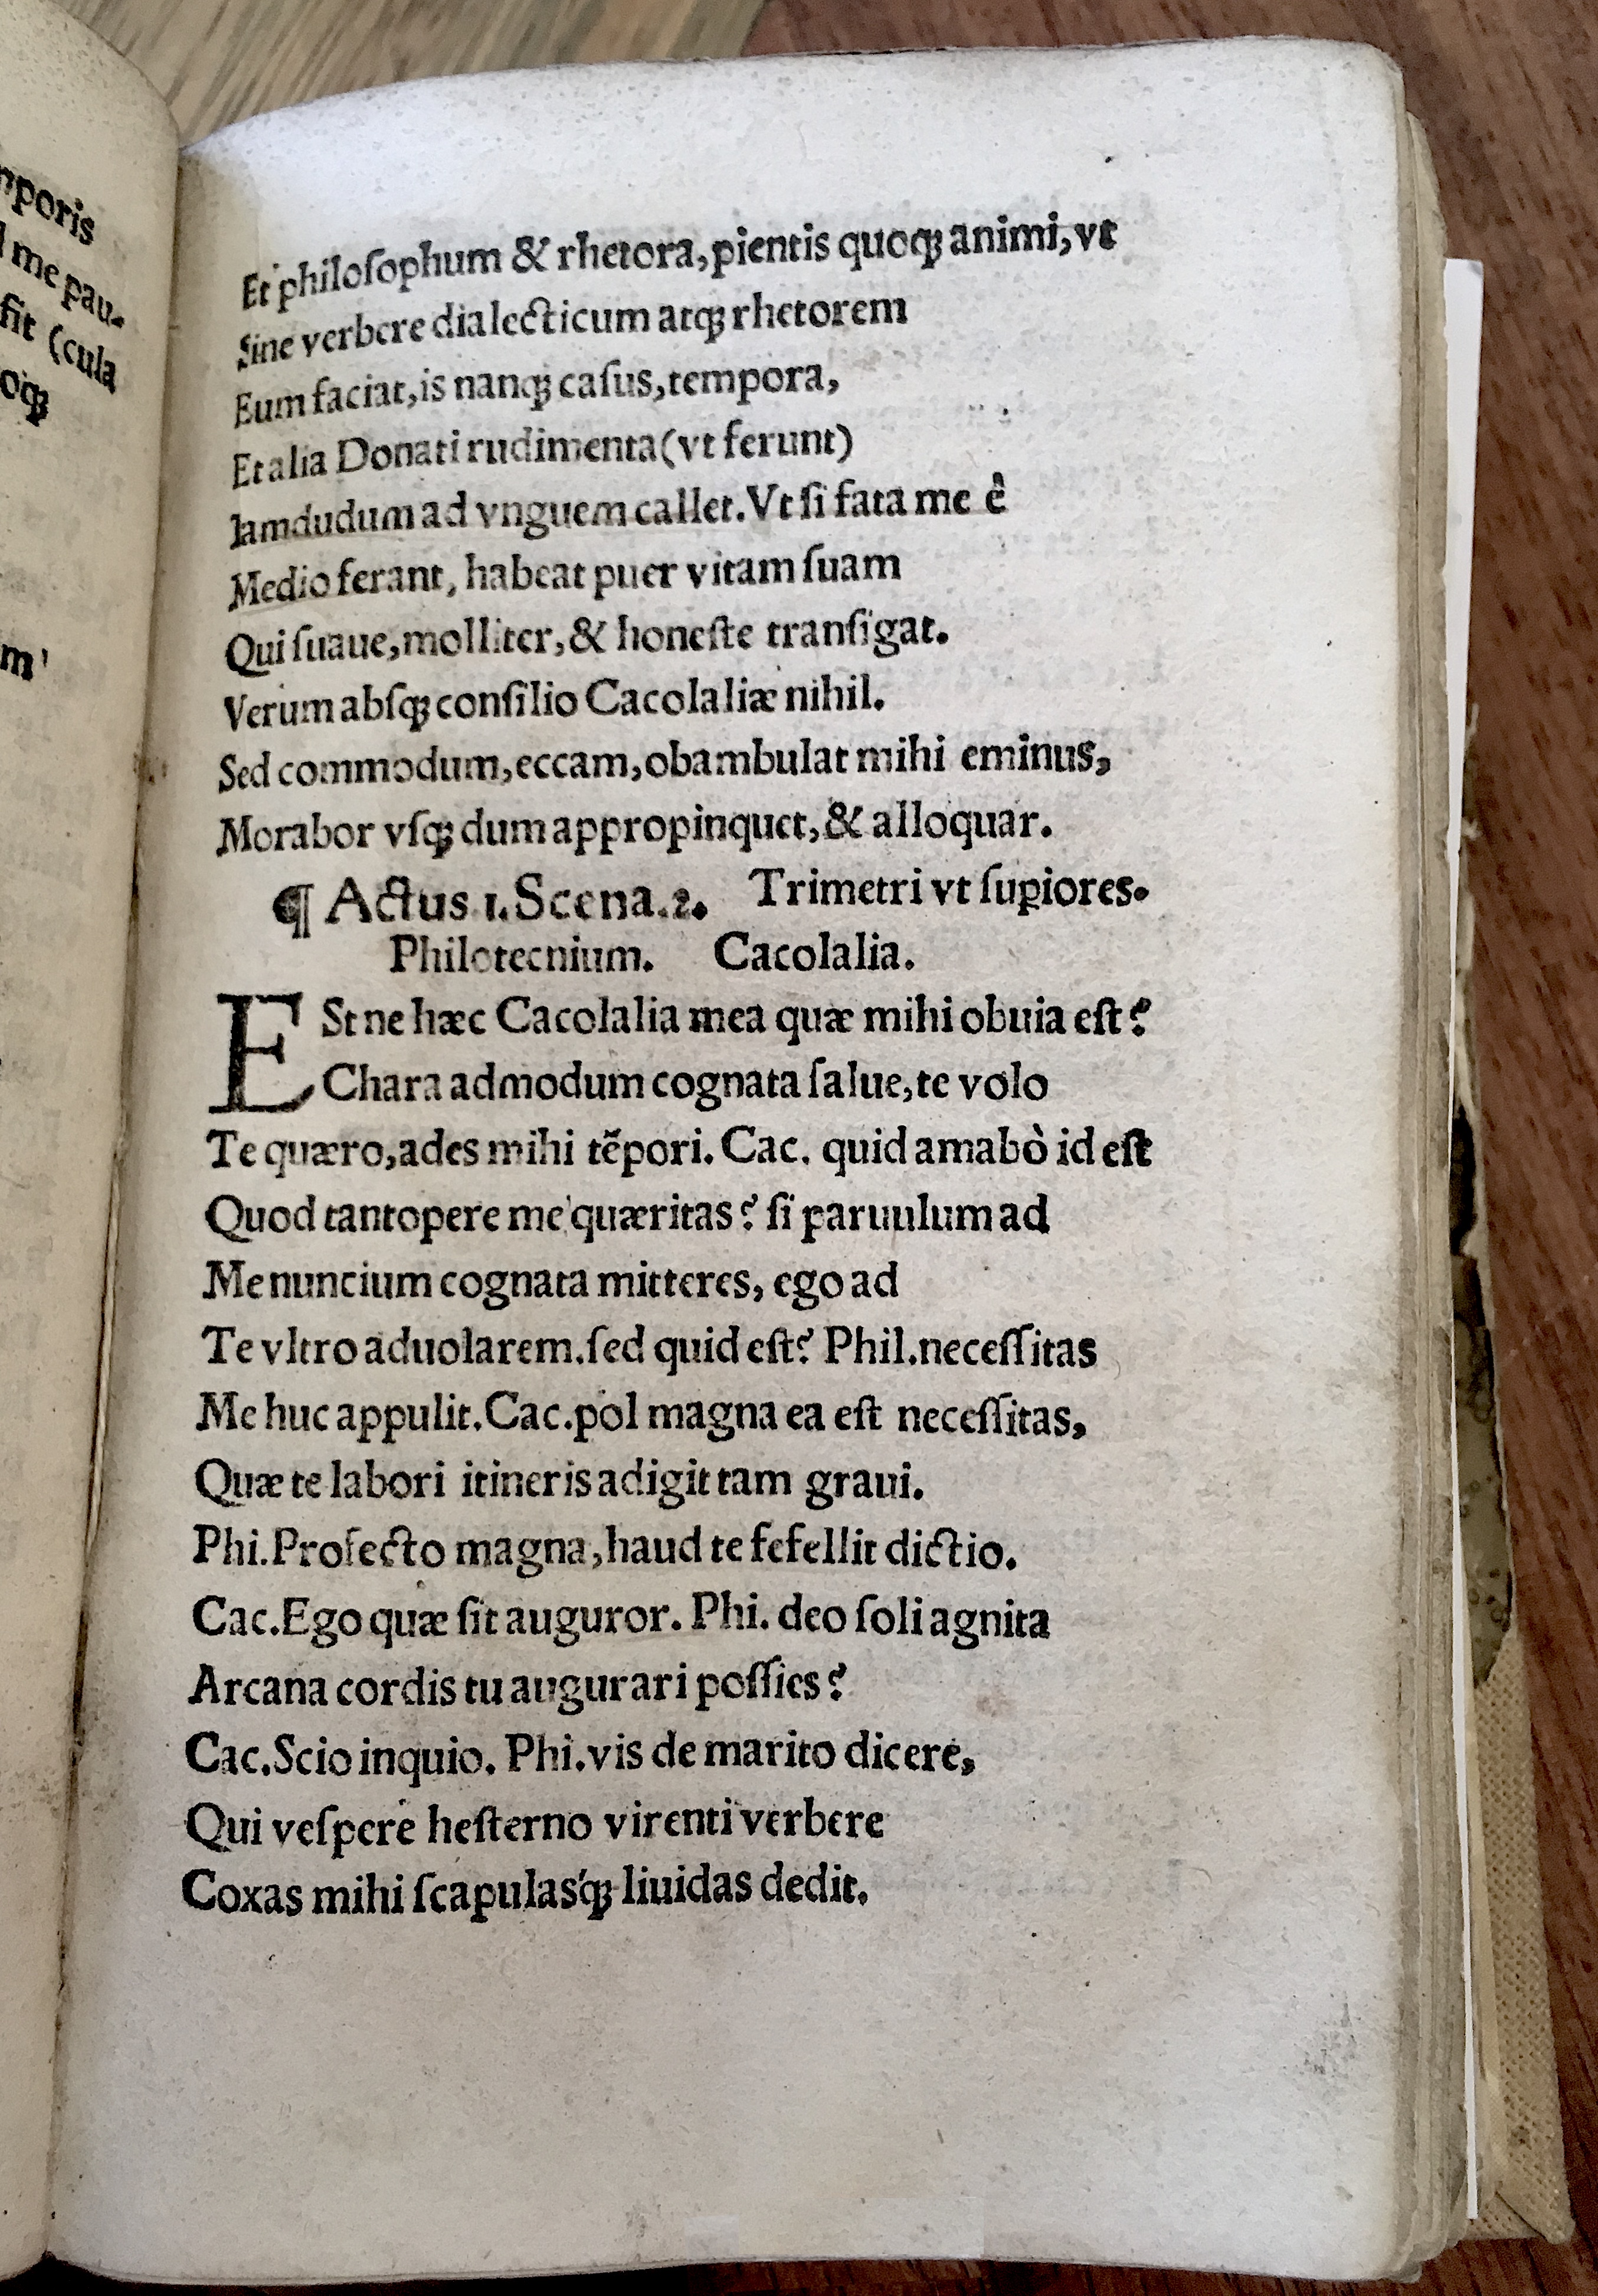 mporis
me pau-
fit (cula
oqꝫ
m'
Et philoſophum & rhetora, pientis quoqꝫ animi, vt
Sine verbere dialecticum atqꝫ rhetorem
Eum faciat, is nanqꝫ caſus, tempora,
Et alia Donati rudimenta (vt ferunt)
Iamdudum ad vnguem callet. Vt ſi fata me ê
Medio ferant, habeat puer vitam ſuam
Qui ſuaue, molliter, & honeſte tranſigat.
Verum abſqꝫ conſilio Cacolaliæ nihil.
Sed commodum, eccam, obambulat mihi eminus,
Morabor vſqꝫ dum appropinquet, & alloquar.
¶ Actus 1. Scena. 2. Trimetri vt ſuꝑiores.
Philotecnium. Cacolalia.
ESt ne hæc Cacolalia mea quæ mihi obuia eſt?
Chara admodum cognata ſalue, te volo
Te quæro, ades mihi tẽpori. Cac. quid amabò id eſt
Quod tantopere me quæritas? ſi paruulum ad
Me nuncium cognata mitteres, ego ad
Te vltro aduolarem. ſed quid eſt? Phil. neceſſitas
Me huc appulit. Cac. pol magna ea eſt neceſſitas,
Quæ te labori itineris adigit tam graui.
Phi. Profecto magna, haud te fefellit dictio.
Cac. Ego quæ ſit auguror. Phi. deo ſoli agnita
Arcana cordis tu augurari poſſies?
Cac. Scio inquio. Phi. vis de marito dicere,
Qui veſpere heſterno virenti verbere
Coxas mihi ſcapulas'qꝫ liuidas dedit.